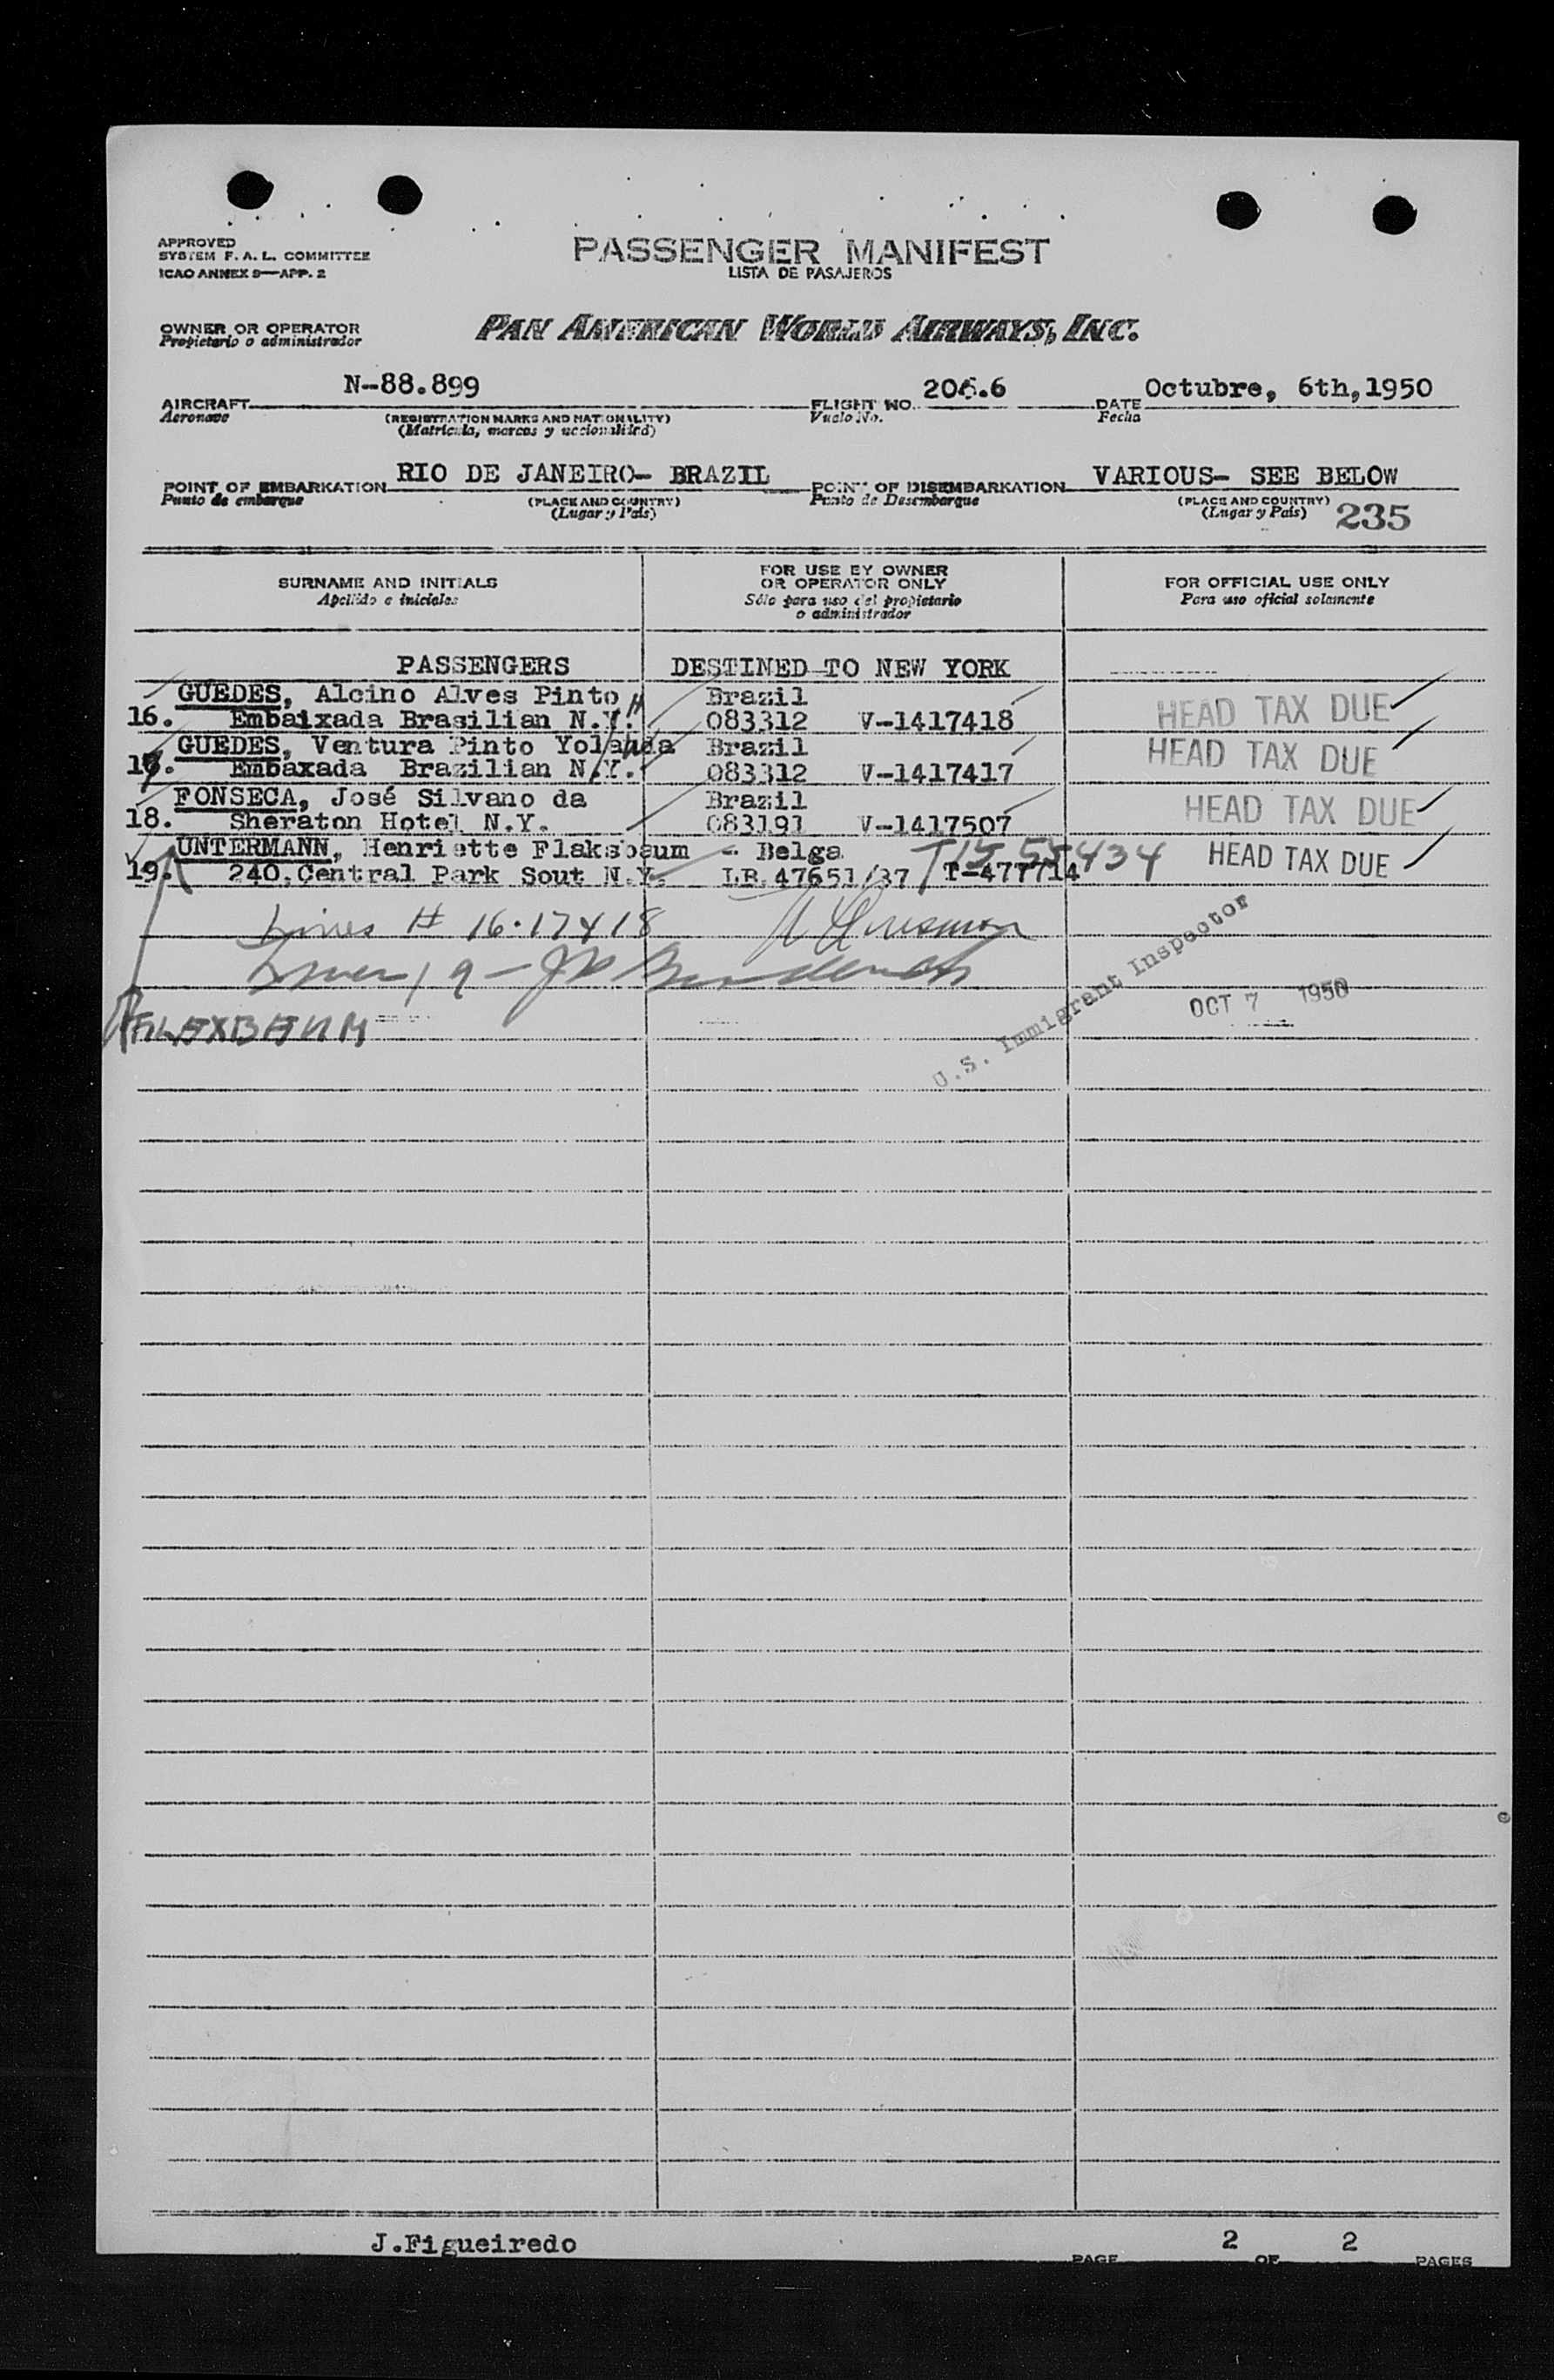 APPROVED
SYSTEM F. A. L. COMMITTEE
ICAO ANNEX 9—APP. 2
PASSENGER MANIFEST
LISTA DE PASAJEROS
OWNER OR OPERATOR
Propietario o administrador
PAN AMERICAN WORLD AIRWAYS, INC.
AIRCRAFT N-88.899 FLIGHT NO. 206.6 DATE Octubre, 6th, 1950
Aeronave (REGISTRATION MARKS AND NATIONALITY) Vuelo No. Fecha
(Matricula, marcas y nacionalidad)
POINT OF EMBARKATION RIO DE JANEIRO- BRAZIL POINT OF DISEMBARKATION VARIOUS- SEE BELOW
Punto de embarque (PLACE AND COUNTRY) Punto de Desembarque (PLACE AND COUNTRY)
(Lugar y Pais) (Lugar y Pais) 235
SURNAME AND INITIALS FOR USE BY OWNER OR OPERATOR ONLY FOR OFFICIAL USE ONLY
Apellido e iniciales Sólo para uso del propietario o administrador Para uso oficial solamente
PASSENGERS DESTINED TO NEW YORK
GUEDES, Alcino Alves Pinto Brazil
16. Embaixada Brasilian N.Y. 083312 V-1417418 HEAD TAX DUE
GUEDES, Ventura Pinto Yolanda Brazil
17. Embaxada Brazilian N.Y. 083312 V-1417417 HEAD TAX DUE
FONSECA, José Silvano da Brazil
18. Sheraton Hotel N.Y. 083191 V-1417507 HEAD TAX DUE
UNTERMANN, Henriette Flaksbaum - Belga T15 55434 HEAD TAX DUE
19. 240.Central Park Sout N.Y. LB.47651/37 T-477714
Lines # 16.17 & 18
19
FLAXBAUM
U.S. Immigrant Inspector
OCT 7 1950
J.Figueiredo
PAGE 2 OF 2 PAGES